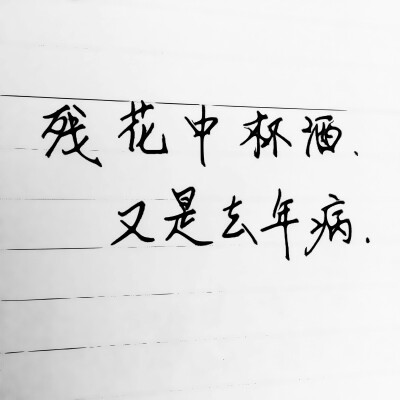 残花中杯酒.
又是去年病.